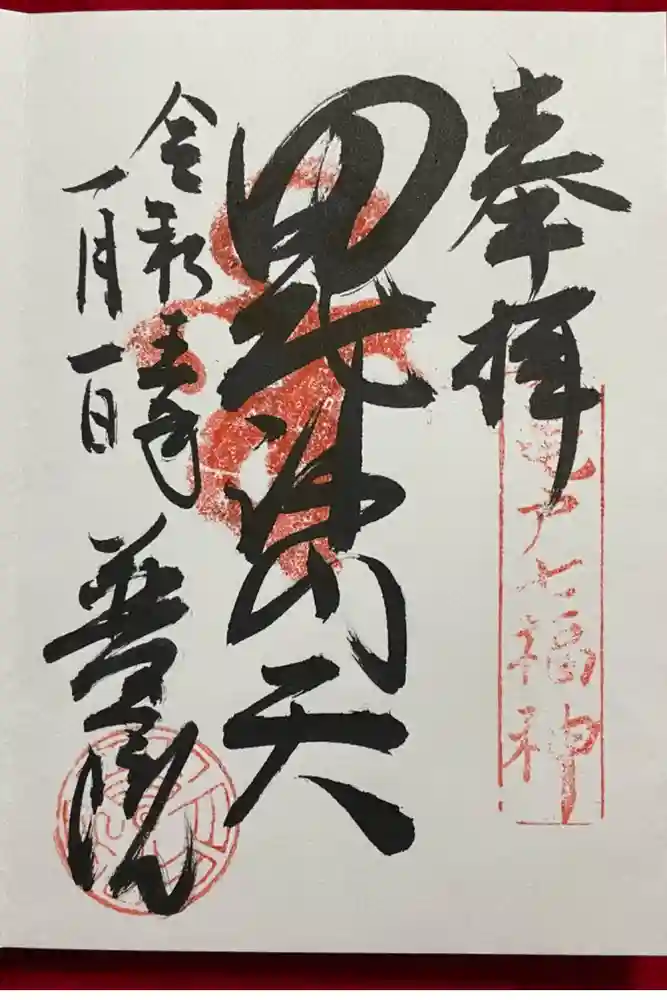 奉拝
亀戸七福神
毘沙門天
令和五年
一月一日
普門院